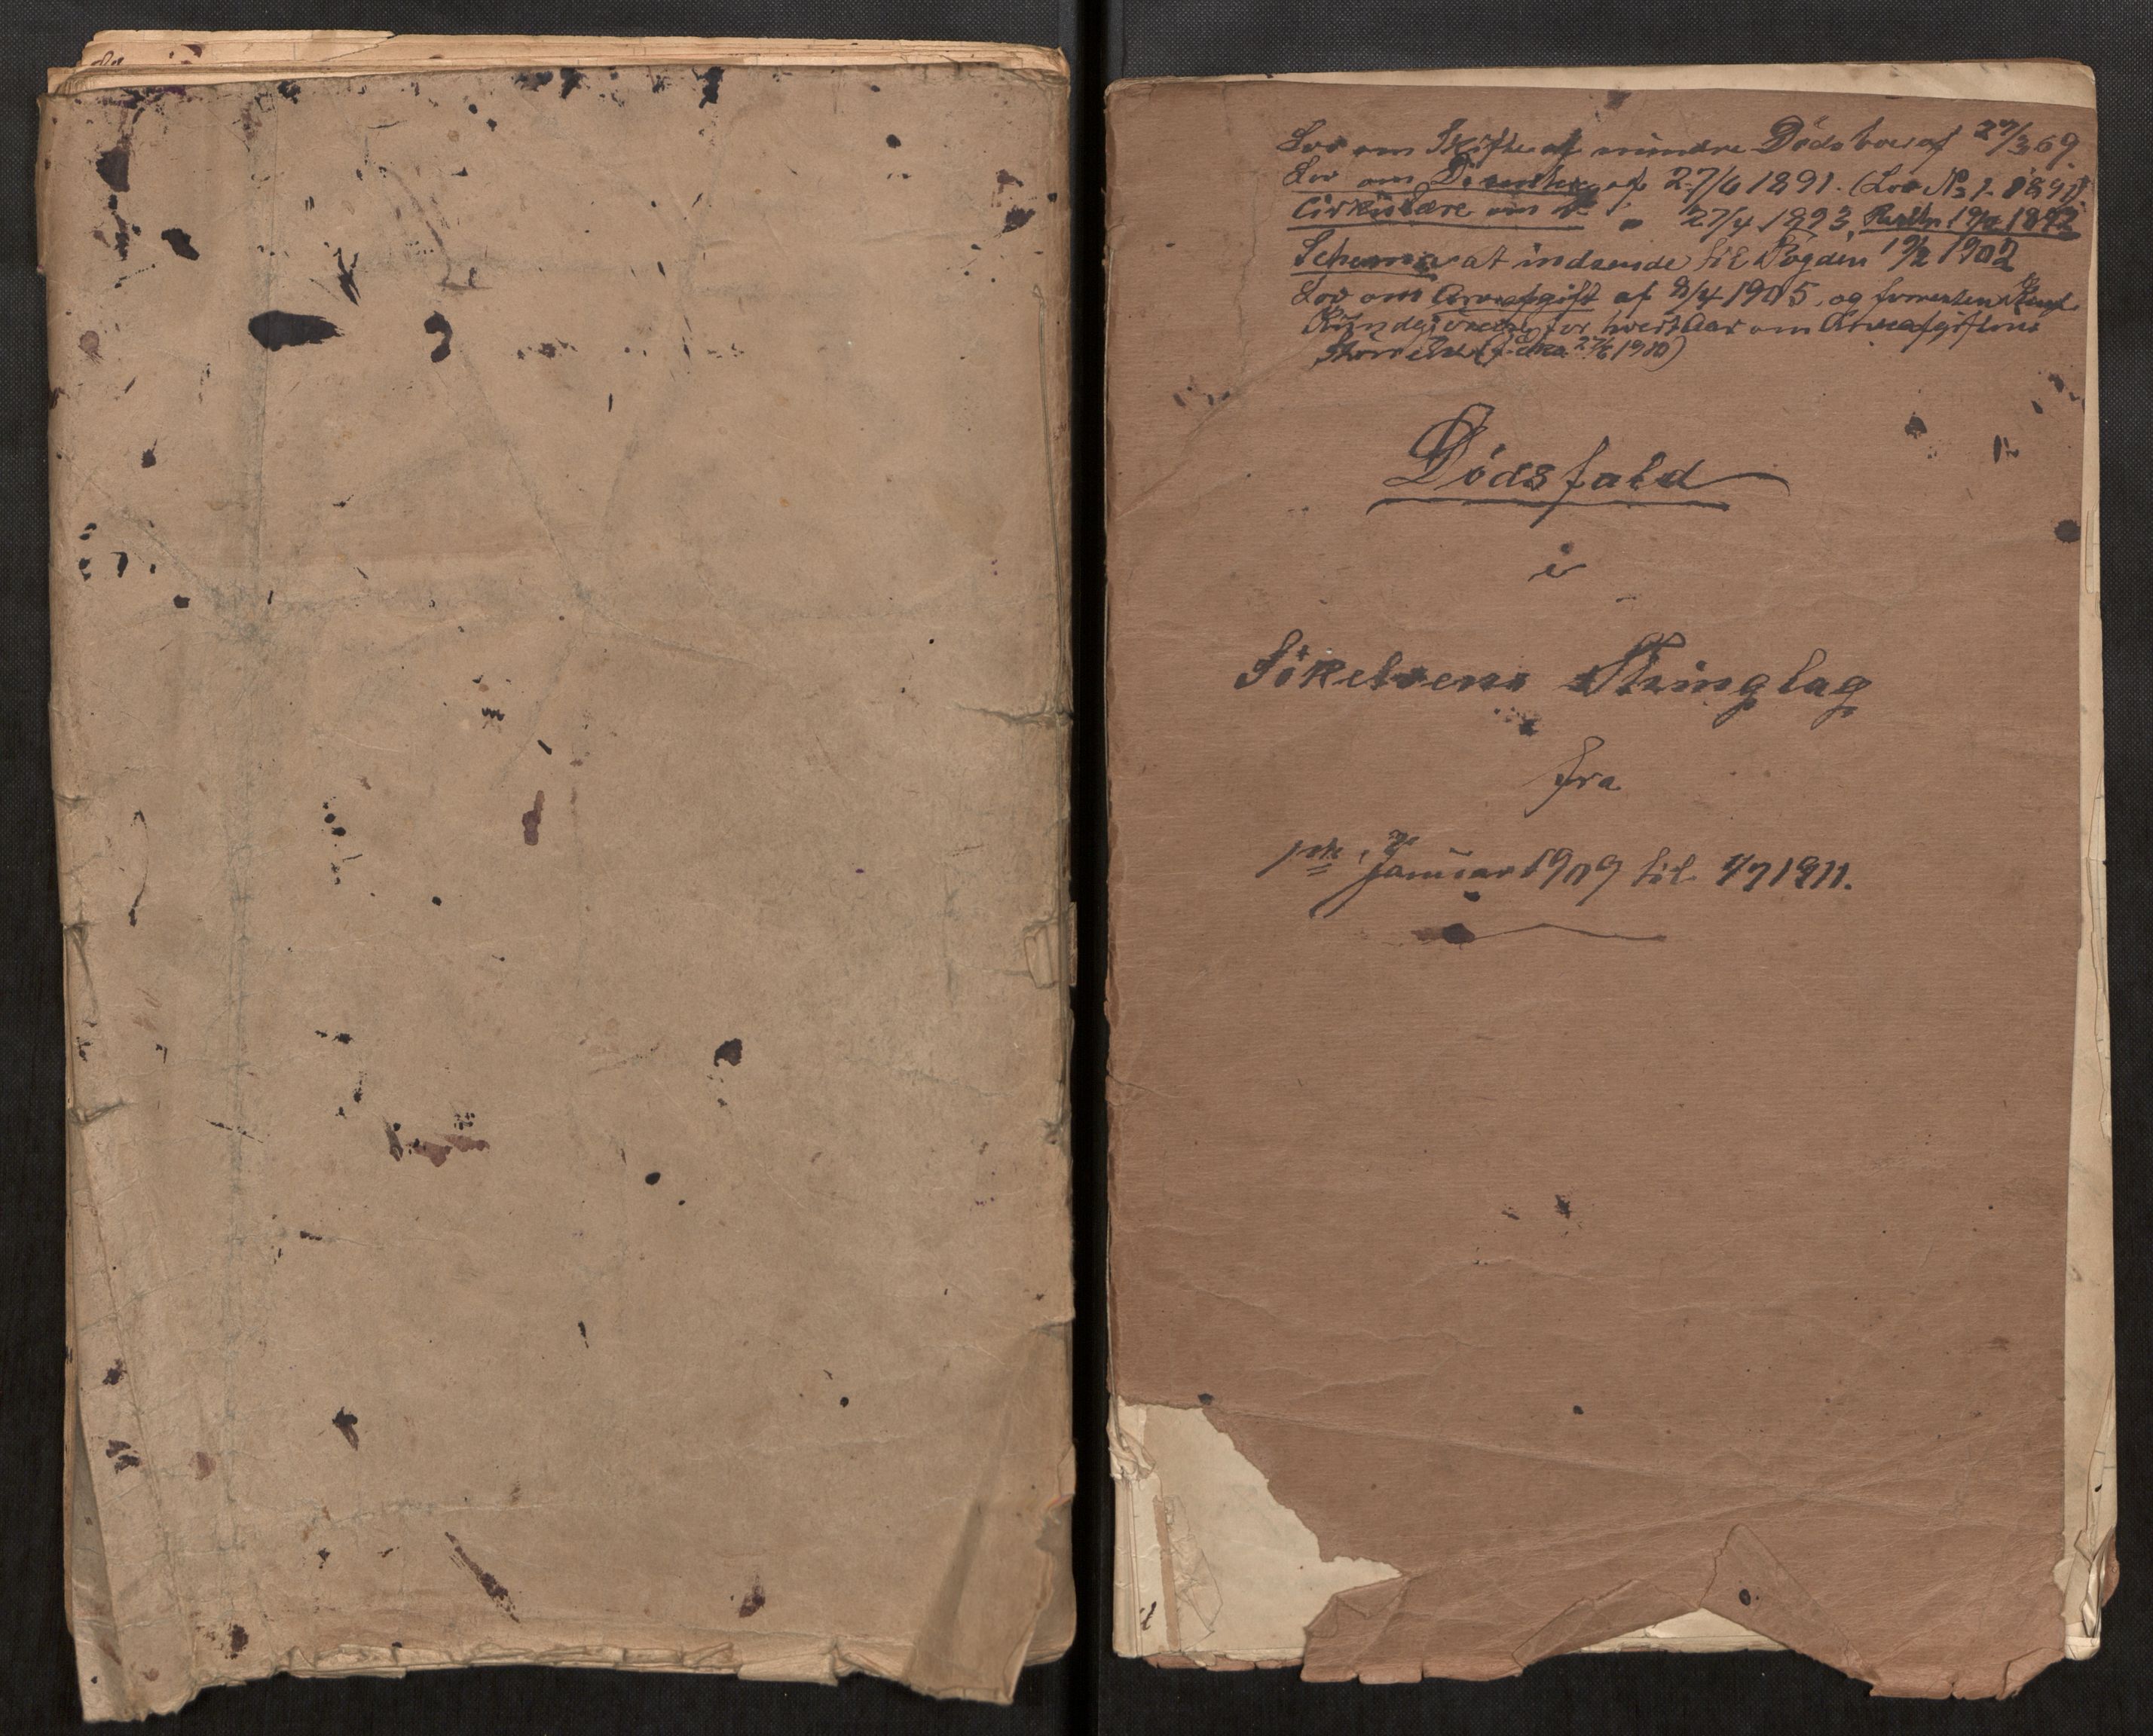 Lov om Skifte af mindre Dødsboer af 27/3 69.
Lov om af 27/6 1891. (Lov No 1. 1891)
Cirkulære om 27/4 1893, 1892
Schema at indsende til Fogden 1902
Lov om Arveafgift af 8/4 1905, og forresten
Kundgjørelse for hvert Aar om Arveafgiftens
Størrelse 1910)
Dødsfald
i
Sökelvens Thinglag
fra
Januar 1909 til 1/7 1911.